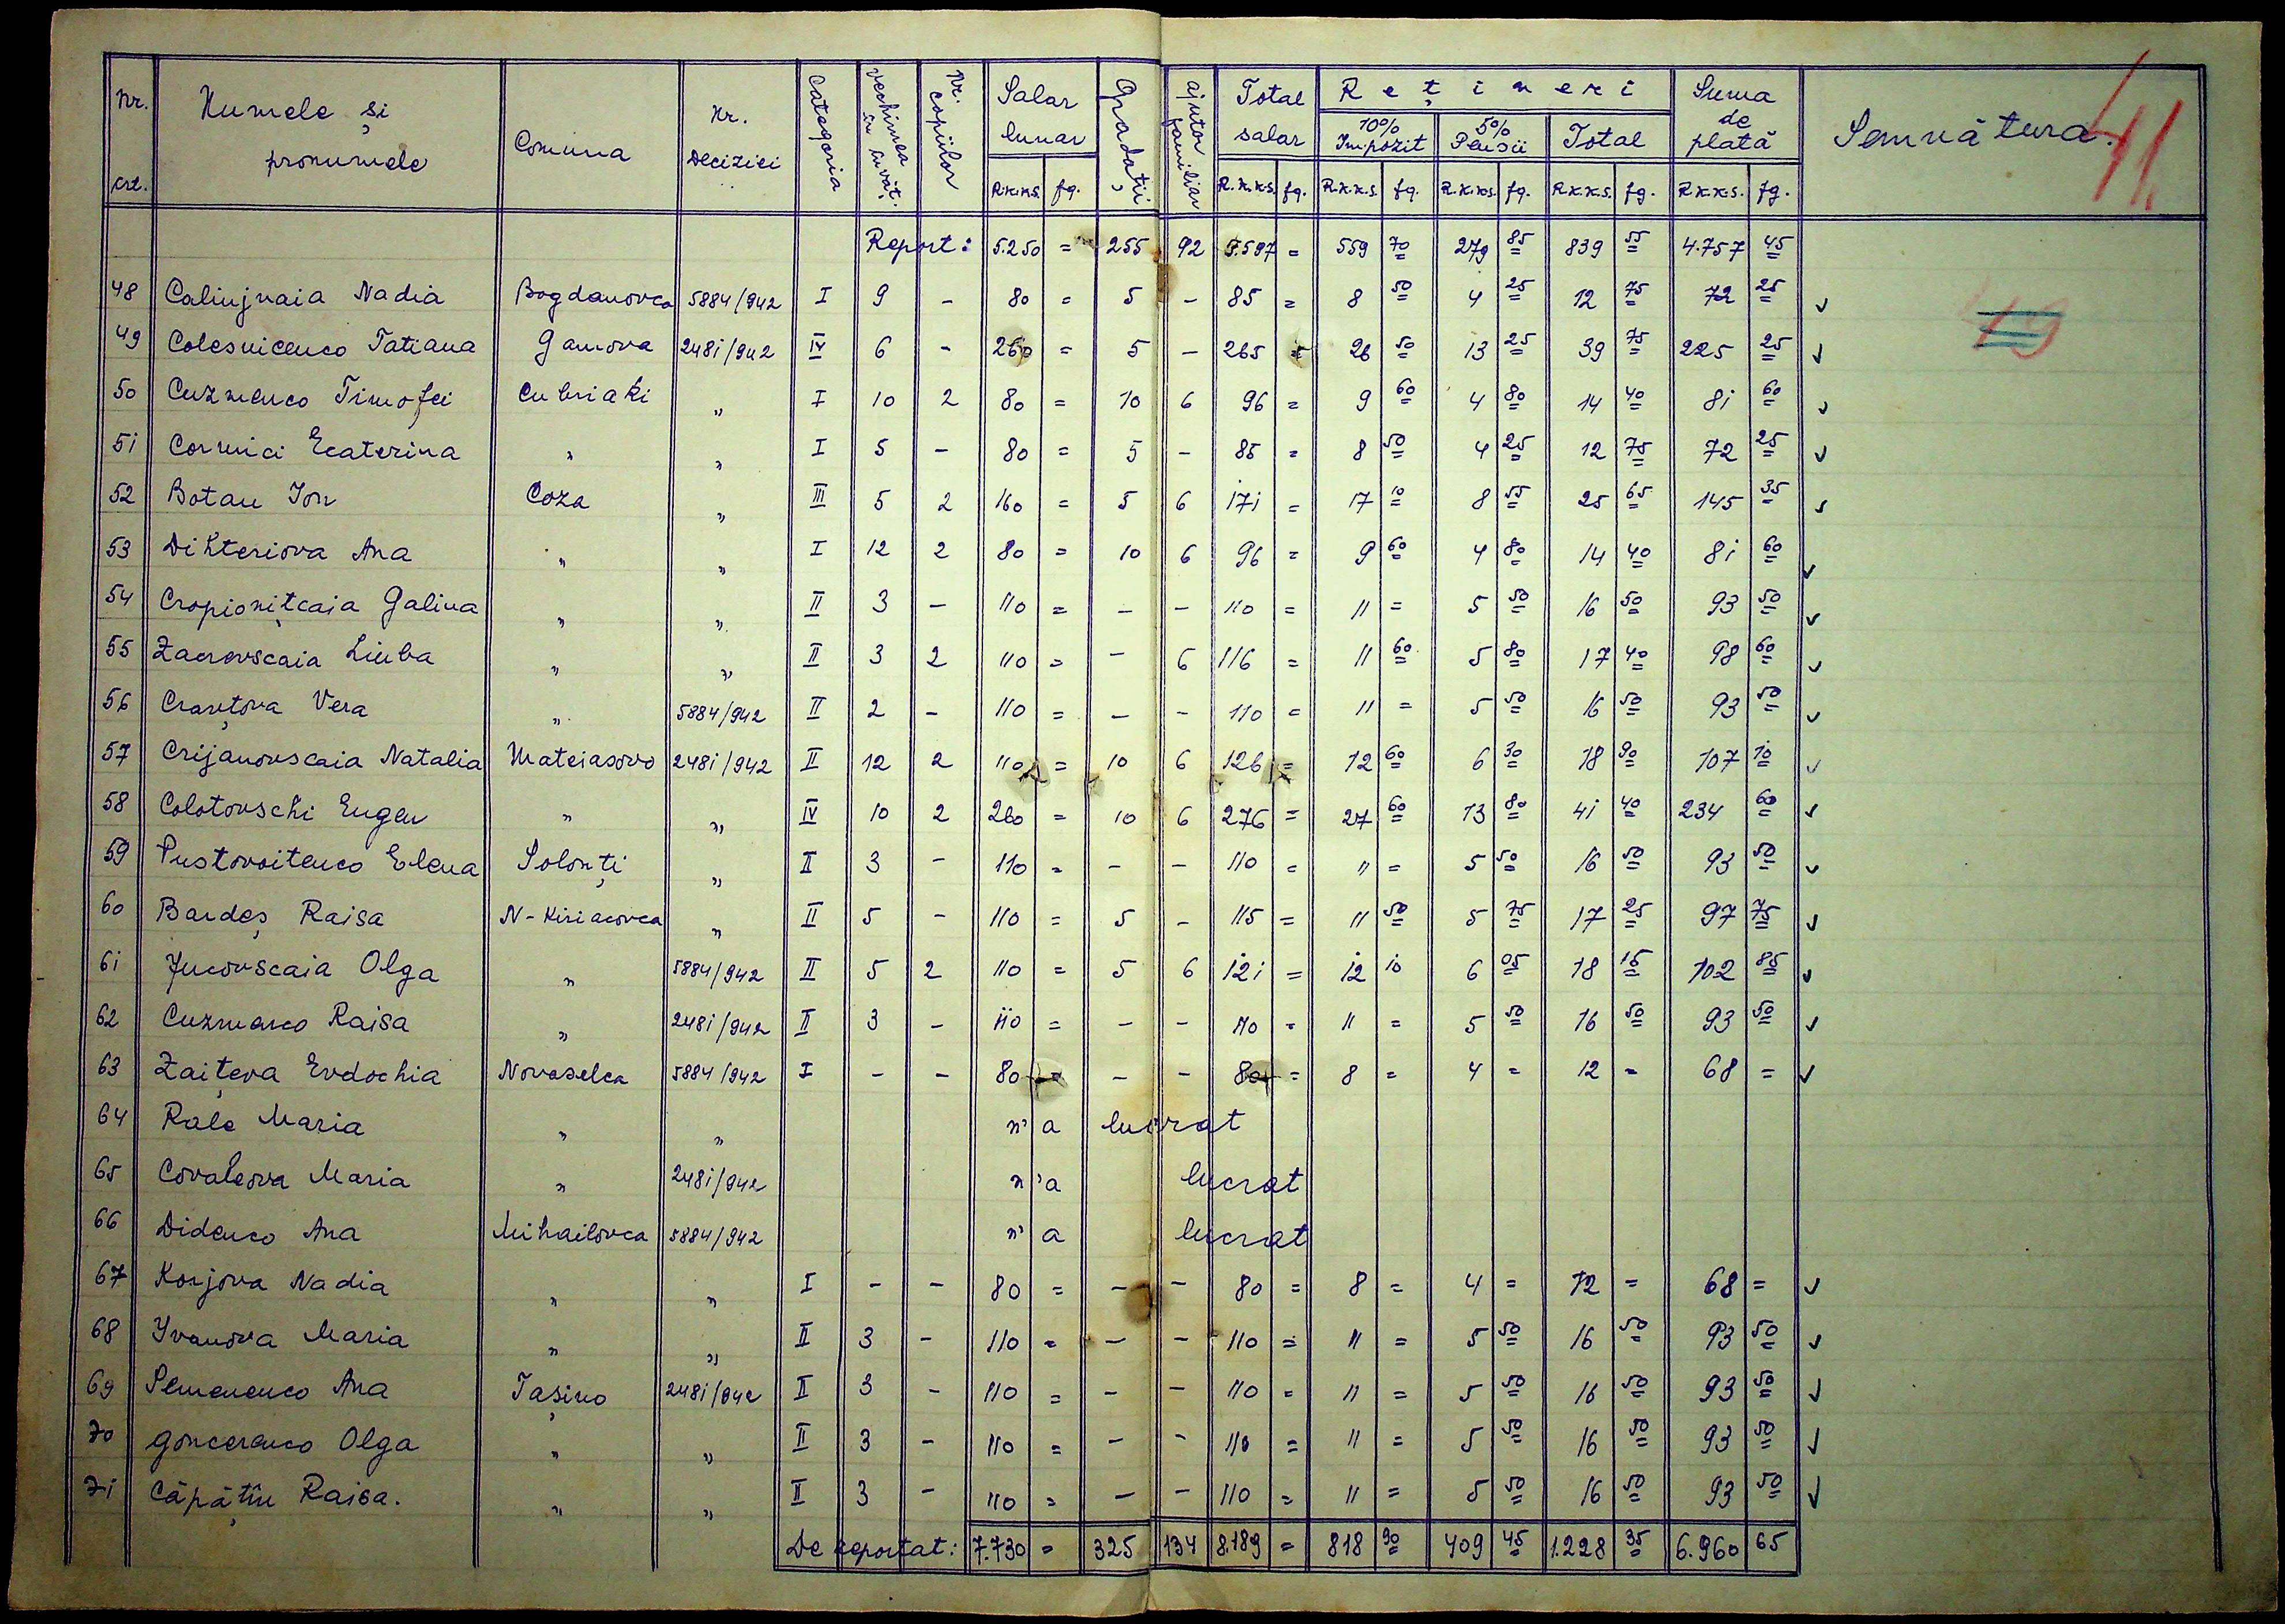 41.
Nr. crt. Numele și pronumele Comuna Nr. Deciziei Categoria Vechimea în învăț. Nr. copiilor Salar lunar Gradații ajutor familiar Total salar Rețineri Suma de plată Semnătura.
10% Impozit 5% Pensii Total
R.K.K.S. fg. R.K.K.S. fg. R.K.K.S. fg. R.K.K.S. fg. R.K.K.S. fg. R.K.K.S. fg.
Report: 5.250 = 255 92 5.597 = 559 70 279 85 839 55 4.757 45
48 Calinjnaia Nadia Bogdanovca 5884/942 I 9 - 80 = 5 - 85 = 8 50 4 25 12 75 72 25 ✓
19
49 Colesnicenco Tatiana Gamova 248i/942 IV 6 - 260 = 5 - 265 = 26 50 13 25 39 75 225 25 ✓
50 Cuzmenco Timofei Cubriaki " I 10 2 80 = 10 6 96 = 9 60 4 80 14 40 8i 60 ✓
5i Cornici Ecaterina " " I 5 - 80 = 5 - 85 = 8 50 4 25 12 75 72 25 ✓
52 Botan Ion Coza " III 5 2 160 = 5 6 17i = 17 10 8 55 25 65 145 35 ✓
53 Dikteriova Ana " " I 12 2 80 = 10 6 96 = 9 60 4 80 14 40 8i 60 ✓
54 Cropionițcaia Galina " " II 3 - 110 = - - 110 = 11 = 5 50 16 50 93 50 ✓
55 Zacrevscaia Liuba " " II 3 2 110 = - 6 116 = 11 60 5 80 17 40 98 60 ✓
56 Cravțova Vera " 5884/942 II 2 - 110 = - - 110 = 11 = 5 50 16 50 93 50 ✓
57 Crijanovscaia Natalia Mateiasovo 248i/942 II 12 2 110 = 10 6 126 = 12 60 6 30 18 90 107 10 ✓
58 Colotovschi Eugen " " IV 10 2 260 = 10 6 276 = 27 60 13 80 4i 40 234 60 ✓
59 Pustovoitenco Elena Solonți " II 3 - 110 = - - 110 = 11 = 5 50 16 50 93 50 ✓
60 Bardeș Raisa N-Kiriacovca " II 5 - 110 = 5 - 115 = 11 50 5 75 17 25 97 75 ✓
6i Jucovscaia Olga " 5884/942 II 5 2 110 = 5 6 12i = 12 10 6 05 18 15 102 85 ✓
62 Cuzmenco Raisa " 248i/942 II 3 - 110 = - - 110 = 11 = 5 50 16 50 93 50 ✓
63 Zaițeva Evdochia Novoselca 5884/942 I - - 80 = - - 80 = 8 = 4 = 12 = 68 = ✓
64 Rale Maria " " n'a lucrat
65 Covaleova Maria " 248i/942 n'a lucrat
66 Didenco Ana Mihailovca 5884/942 n'a lucrat
67 Korjova Nadia " " I - - 80 = - - 80 = 8 = 4 = 12 = 68 = ✓
68 Yvanova Maria " " II 3 - 110 = - - 110 = 11 = 5 50 16 50 93 50 ✓
69 Semenenco Ana Tașino 248i/942 II 3 - 110 = - - 110 = 11 = 5 50 16 50 93 50 ✓
70 Goncerenco Olga " " II 3 - 110 = - - 110 = 11 = 5 50 16 50 93 50 ✓
7i Căpățîn Raisa. " " II 3 - 110 = - - 110 = 11 = 5 50 16 50 93 50 ✓
De reportat: 7.730 = 325 134 8.189 = 818 90 409 45 1.228 35 6.960 65